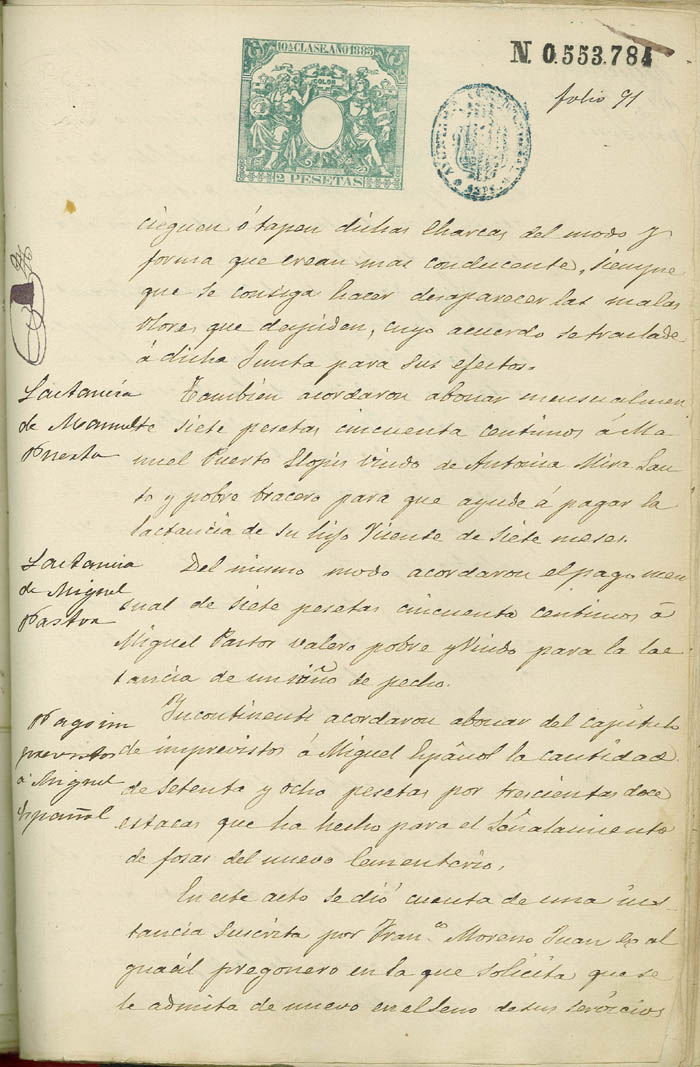 10ª CLASE. AÑO 1883
COLON
2 PESETAS
N. 0.553.784
folio 91
cieguen ó tapen dichas Charcas del modo y
forma que crean mas conducente, siempre
que se consiga hacer desaparecer las malas
olores que despiden, cuyo acuerdo se traslade
á dicha Junta para sus efectos.
Lactancia
de Manuel
Puerto
Tambien acordaron abonar mensualmen
te siete pesetas cincuenta centimos á Ma
nuel Puerto Llopis viudo de Antonia Mira San
to y pobre bracero para que ayude á pagar la
lactancia de su hijo Vicente de siete meses.
Lactancia
de Miguel
Pastor
Del mismo modo acordaron el pago men
sual de siete pesetas cincuenta centimos á
Miguel Pastor Valero pobre y viudo para la lac
tancia de un niño de pecho.
Pago im
previstos
á Miguel
Español
Yncontinente acordaron abonar del capítulo
de imprevistos á Miguel Español la cantidad
de setenta y ocho pesetas por trescientas doce
estacas que ha hecho para el señalamiento
de fosas del nuevo Cementerio.
En este acto se dió cuenta de una ins-
tancia suscrita por Franco. Moreno Juan ex al
guacil pregonero en la que solicita que se
le admita de nuevo en el seno de sus servicios